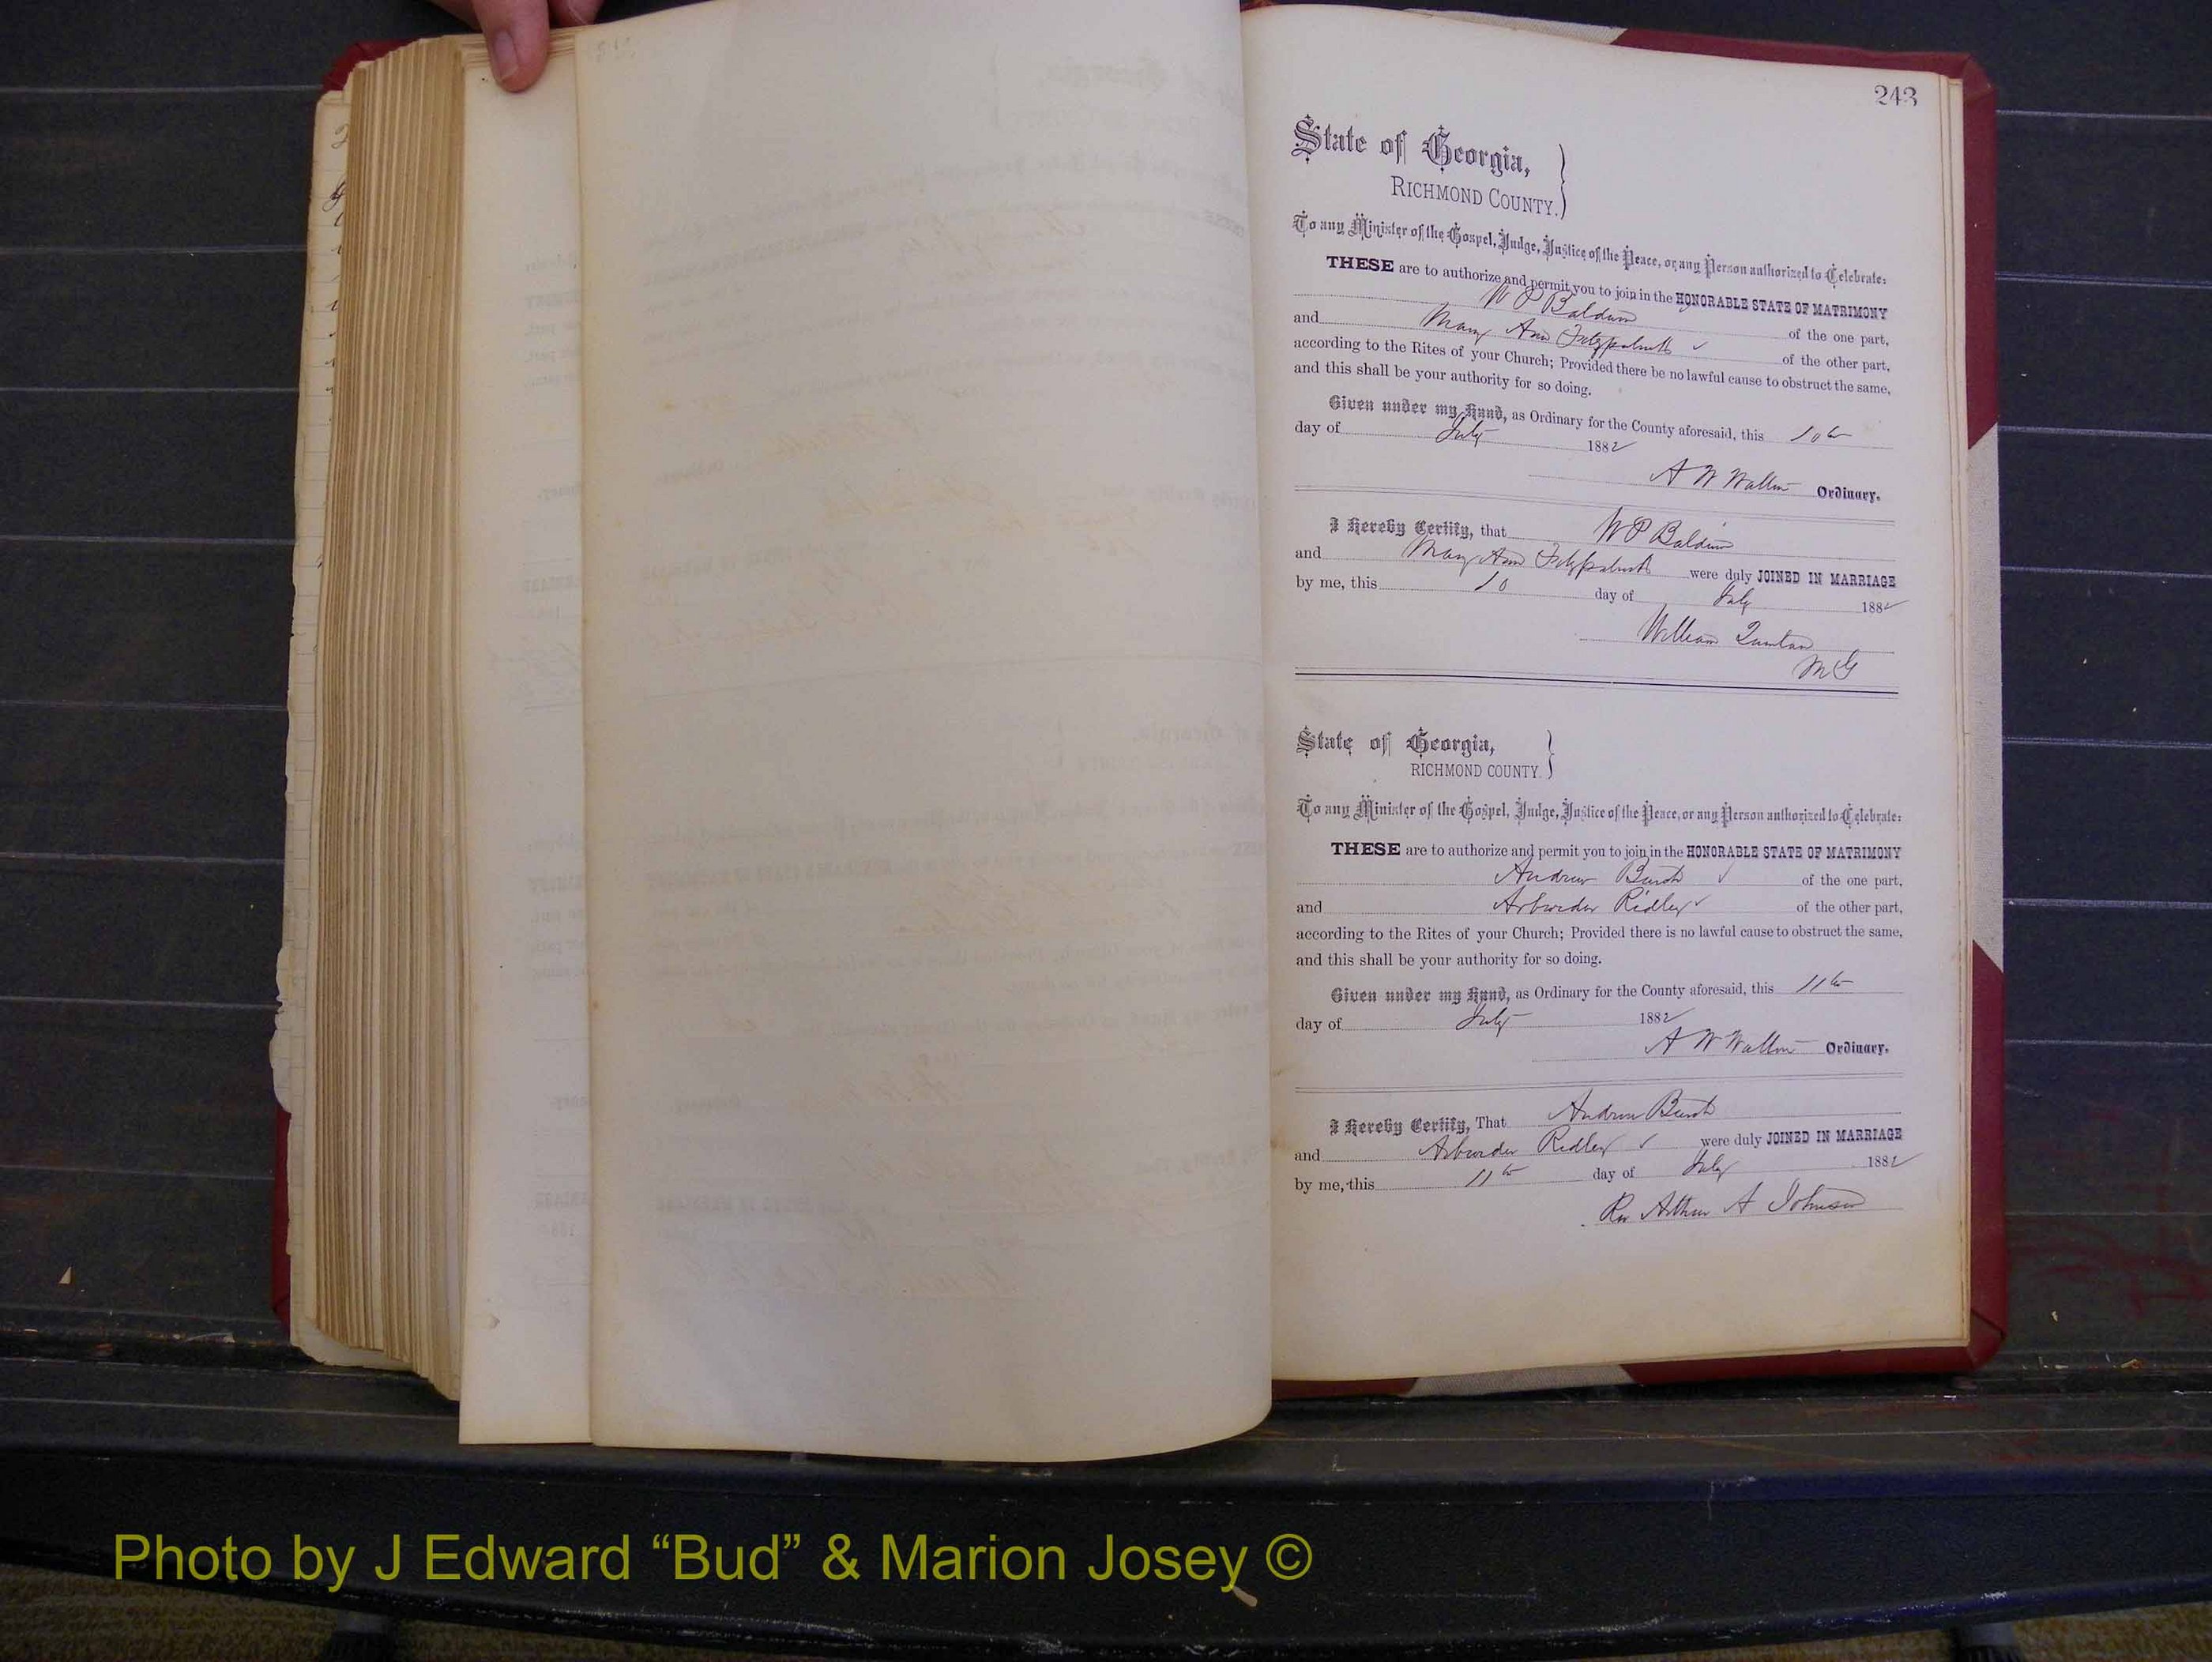 243
State of Georgia,
RICHMOND COUNTY.
To any Minister of the Gospel, Judge, Justice of the Peace, or any Person authorized to Celebrate:
THESE are to authorize and permit you to join in the HONORABLE STATE OF MATRIMONY
W P Baldwin of the one part,
and Mary Ann Fitzpatrick of the other part,
according to the Rites of your Church; Provided there be no lawful cause to obstruct the same,
and this shall be your authority for so doing.
Given under my Hand, as Ordinary for the County aforesaid, this 10th
day of July 1882
A W Walton Ordinary.
I Hereby Certify, that W P Baldwin
and Mary Ann Fitzpatrick were duly JOINED IN MARRIAGE
by me, this 10 day of July 1882
William Quinlan
M G
State of Georgia,
RICHMOND COUNTY.
To any Minister of the Gospel, Judge, Justice of the Peace, or any Person authorized to Celebrate:
THESE are to authorize and permit you to join in the HONORABLE STATE OF MATRIMONY
Andrew of the one part,
and Ridley of the other part,
according to the Rites of your Church; Provided there is no lawful cause to obstruct the same,
and this shall be your authority for so doing.
Given under my Hand, as Ordinary for the County aforesaid, this 11th
day of July 1882
A W Walton Ordinary.
I Hereby Certify, That Andrew
and Ridley were duly JOINED IN MARRIAGE
by me, this 11th day of July 1882
Rev Arthur A Johnson
Photo by J Edward “Bud” & Marion Josey ©